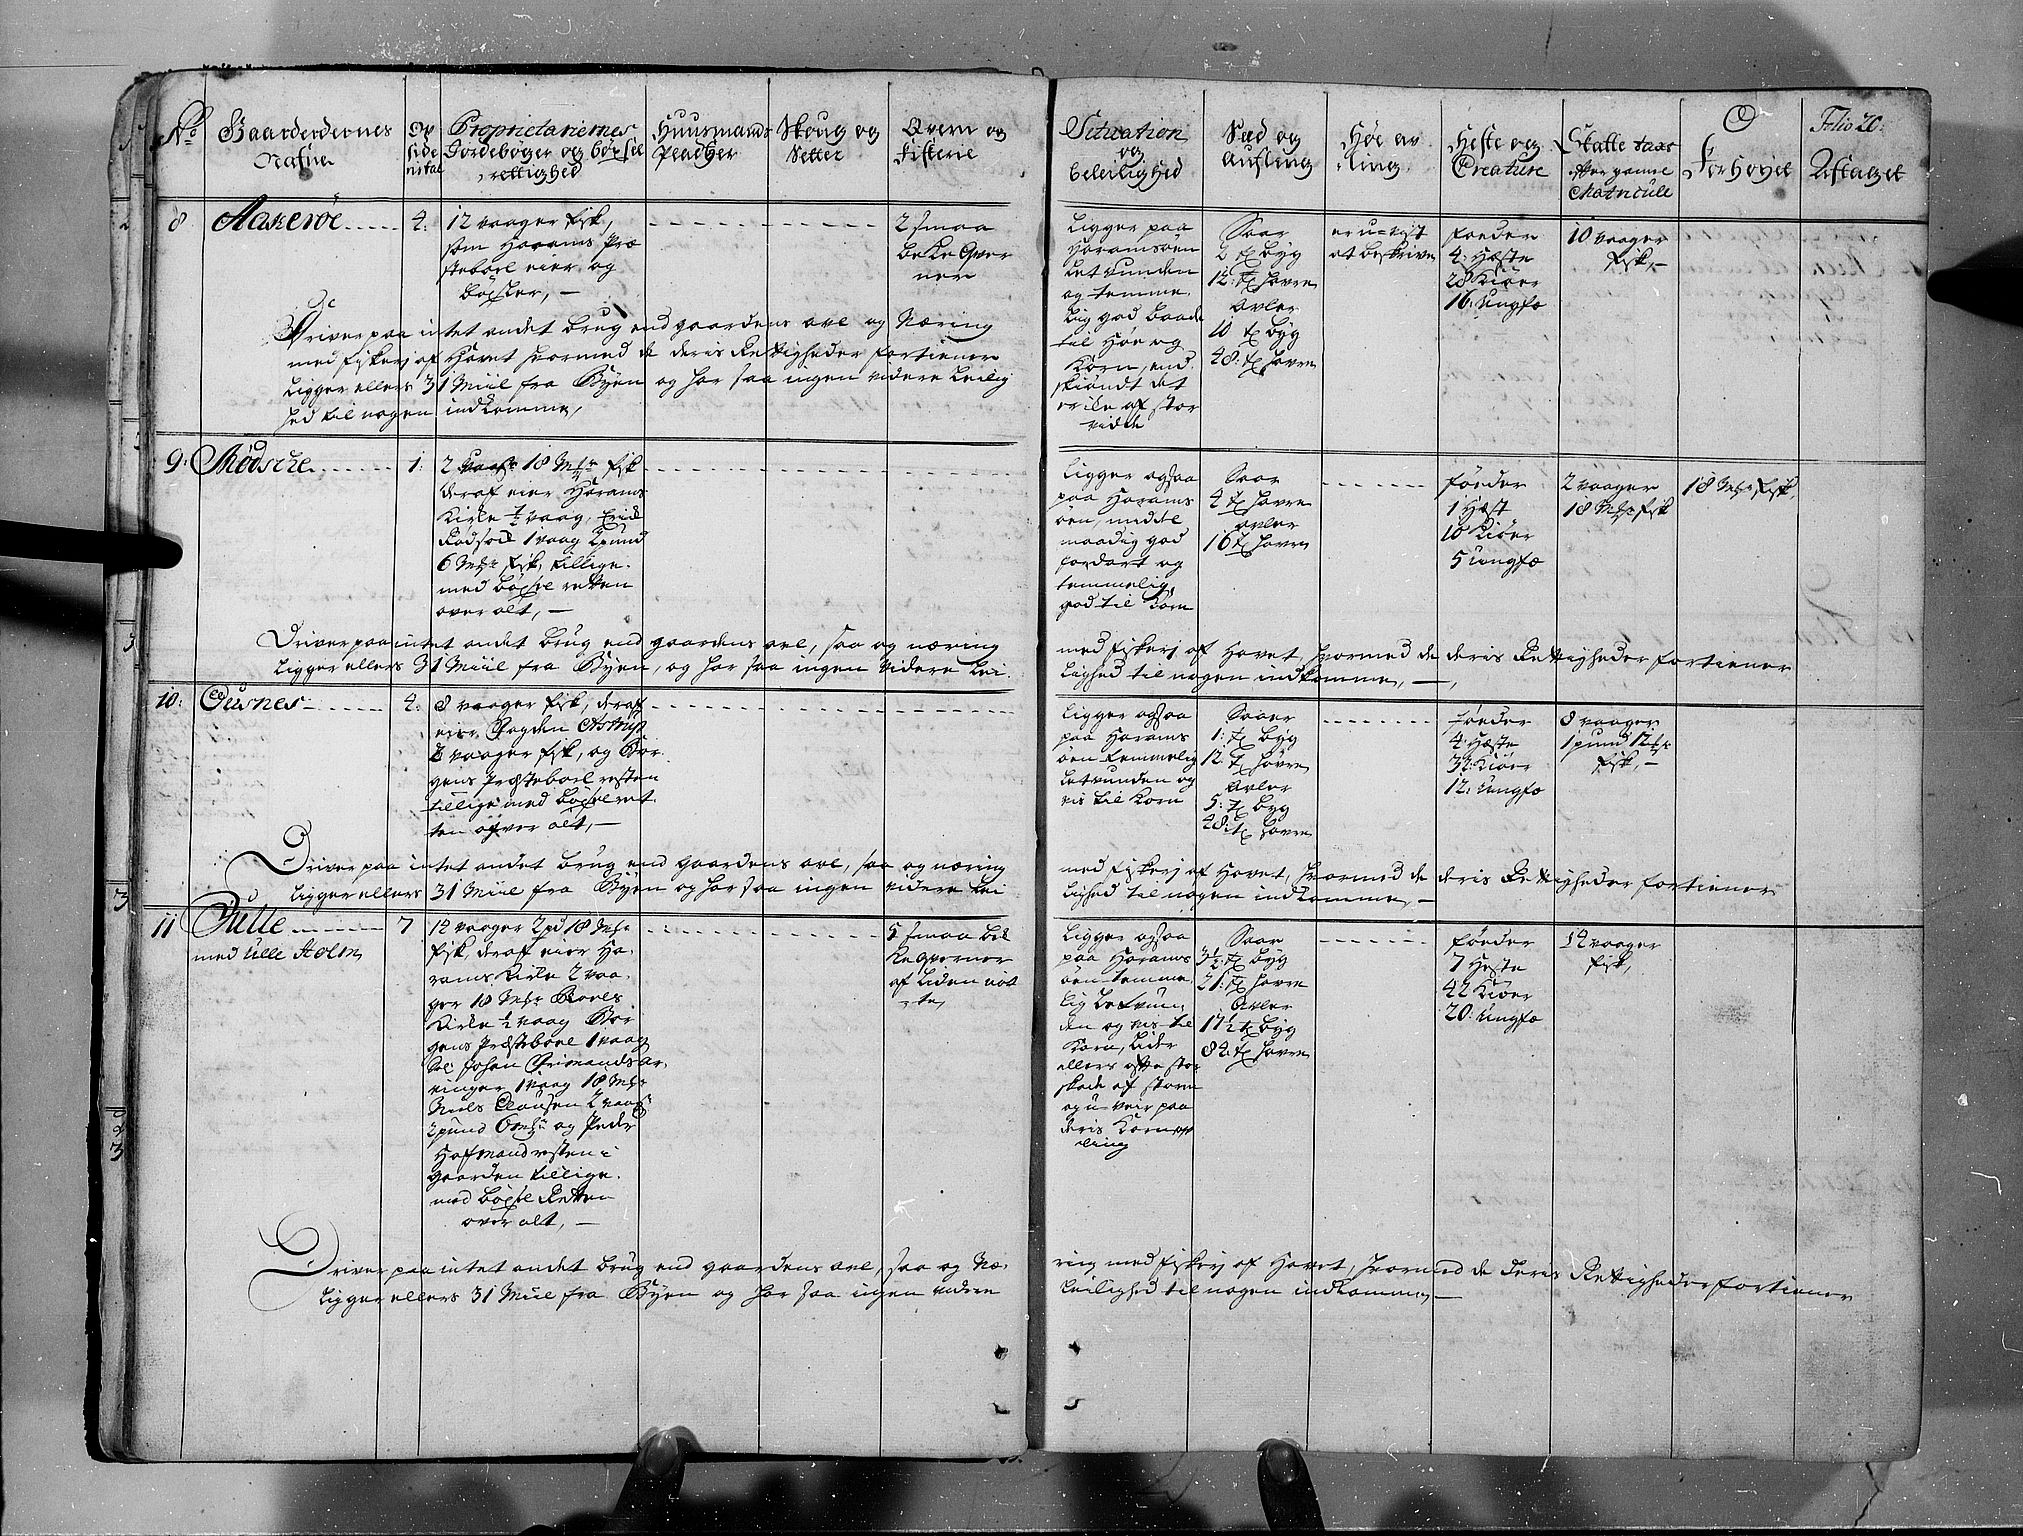 No
Gaarderdernes
Nafne
Op
side
ntal
Proprietariernes
Jordebøger og bøxsel
rettighed
Huusmands
Pladtzer
Skoug og
Setter
Qvern og
Fiskerie
Situation
og
beleilighed
Sæd og
Aufling
Høe av
ling
Heste og
Creature
Skatte taxt
efter gamle
Matricule
Forhøyet
Folio 20:
Aftaget
8
Aakerøe
4:
12 vaager fisk,
som Harams Præ
steboel eier og
bøxler, —
2 smaa
bekeqver
ner
Ligger paa
Haramsöen
letvunden
og temme
lig god baade
til Høe og
Korn, end
skiöndt det
er ike af stor
vidde
Saar
2 tr byg
12: tr havre
avler
10 tr byg
48: tr havre
er u-vist
at beskrive
foeder
4: Hæste
28 Kiöer
16: Ungfæ
10 vaager
fisk, —
Driver paa intet andet brug end gaardens avl og Næring
med fiskerj af Havet hvormed de deris Rettigheder fortiener
ligger ellers 31 Miil fra Byen og har saa ingen videre Leilig
hed til nogen indkomme,
9:
1:
2 vaager 18 Mkr fisk
deraf eier Harams
Kirke ½ vaag, Erick
Rødsæt 1 vaag 2 pund
6 Mkr fisk, tillige
med bøxsel retten
over alt, —
Ligger ogsaa
paa Harams
öen, middel
maadig god
fordart og
temmelig
god til Korn
Saar
4 tr havre
avler
16 tr havre
föeder
1 Hæst
10 Kiöer
5 ungfæ
2 vaager
18 Mkr fisk
18 Mkr fisk,
Driver paa intet andet brug end gaardens avl, saa og næring
med fiskerj af Havet, hvormed de deris Rettigheder fortiener
ligger ellers 31 Miil fra Byen, og har saa ingen videre Lei
lighed til nogen indkomme, —
10:
Ousnes
4:
8 vaager fisk, deraf
eier Fogden Astrup
2 vaager fisk, og Bor
gens Præsteboel resten
tillige med bøxelret
ten ofver alt, —
Ligger ogsaa
paa Harams
öen temmelig
letvunden og
vis til Korn
Saaer
1: tr byg
12 tr havre
Avler
5: tr byg
48: tr havre
föeder
4 Hæste
32: Kiöer
12: Ungfæ
8 vaager
1 pund 12 Mkr
fisk, —
Driver paa intet andet brug end gaardens avl, saa og næring
med fiskerj af Havet, hvormed de deris Rettigheder fortiener
ligger ellers 31 Miil fra Byen og har saa ingen videre Lei
lighed til nogen indkomme, —
11
Ulle
med Ulle Holm
7
14 vaager 2 pd 18 Mkr
fisk, deraf eier Ha
rams Kirke 2 vaa
ger 18 Mkr Roels
Kirke ½ vaag Bor
gens Præsteboel 1 vaag
Sl: Johan Ar
vinger 1 vaag 18 Mkr
Niels Clausen 2 vaag
2 pund 6 Mkr og Peder
Hofmand resten i
gaarden tillige
med bøxsel Retten
over alt, —
5 smaa bek
keqverner
af liden nöt
te,
Ligger ogsaa
paa Harams
öen temme
lig letvun
den og vis til
Korn, lider
ellers ofte stor
skade af storm
og u-veir paa
deris Korn av
ling
Saar
3½: tr byg
21: tr havre
Avler
17½ tr byg
84: tr havre
föeder
7 Heste
42 Kiöer
20: Ungfæ
14 vaager
fisk,
Driver paa intet andet brug end gaardens avl, saa og Næ
ring med fiskerj af Havet, hvormed de deris Rettigheder fortiener
ligger ellers 31 Miil fra Byen og har saa ingen videre
Leilighed til nogen indkomme, —